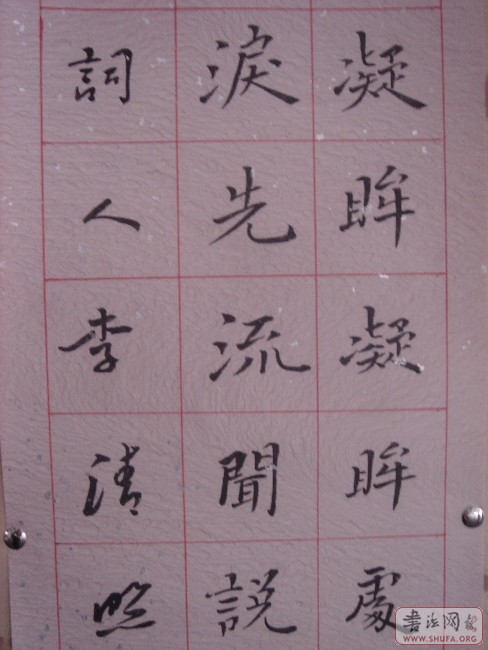 凝眸凝眸處
淚先流聞說
詞人李清照
書法网
WWW.SHUFA.ORG